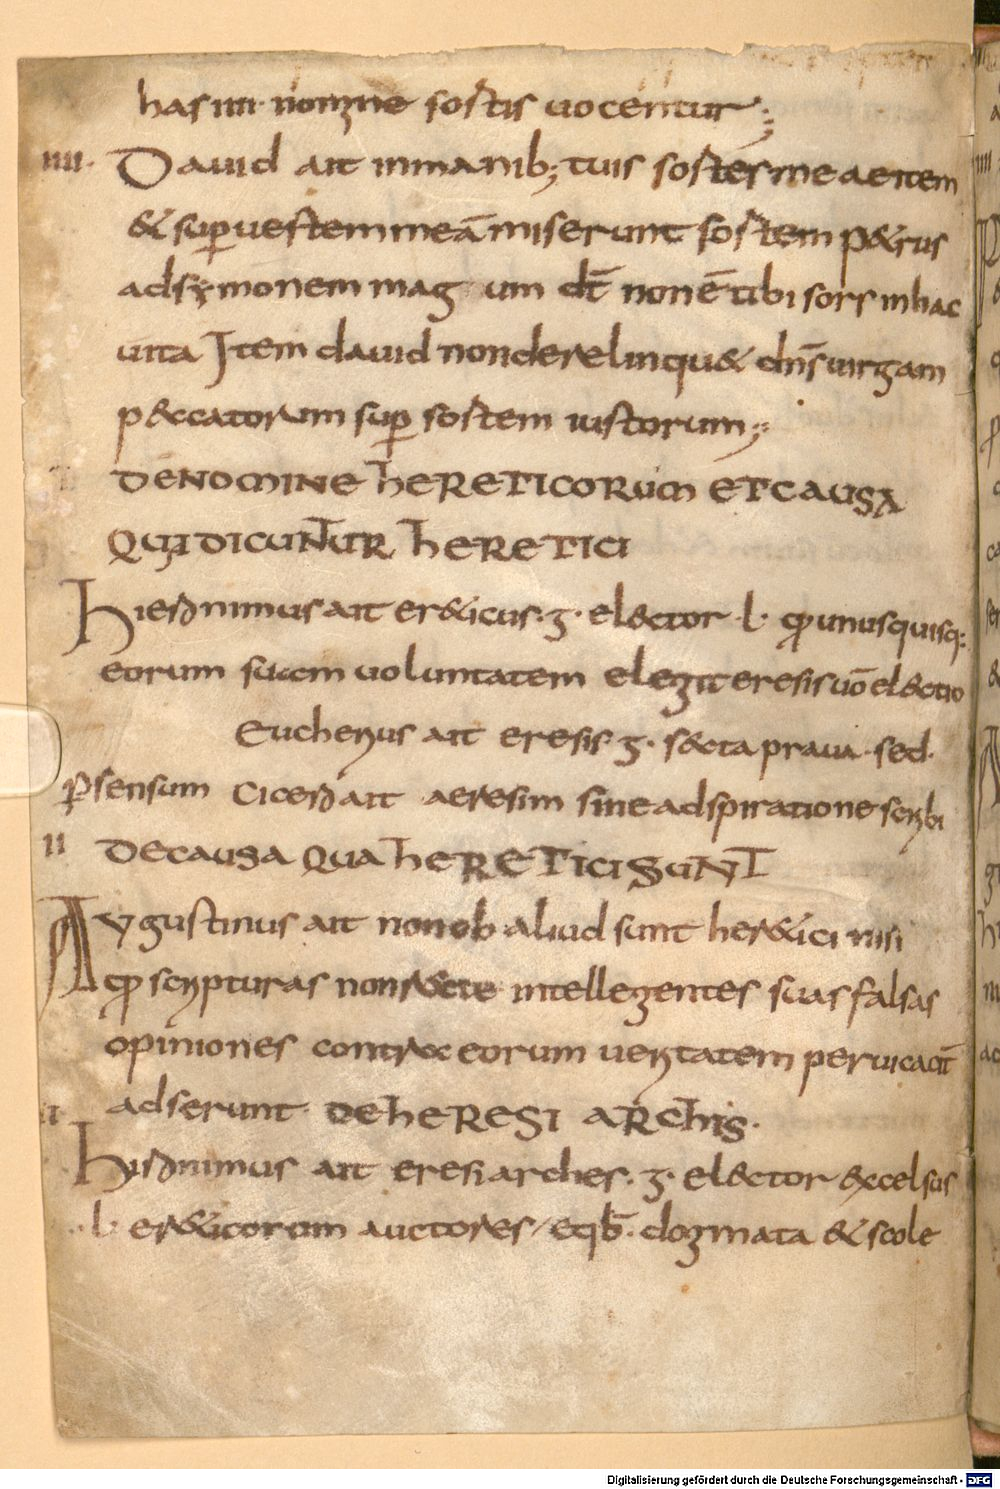 has iiii· nomine sostis uocentur;
iiii· Dauid ait inmanib; tuis sostes me aeitem
& sup uestem meā miserunt sostem p&rus
adsymonem mag um dt̄ non ē tibi sors inhac
uita Item dauid nonderelinqu& dn̄s uirgam
p&ccatorum sup sostem iustorum;
DE NOMINE hERETICORUM ET CAUSA
QUI DICUNTUR hERETICI
hieronimus ait er&icus · ʒ · el&ctor · l · p unusquisq:
eorum suam uoluntatem elegit eresis uō el&ctio
Eucherius ait eresis · ʒ · s&cta praua · sed·
p sensum Cicero ait aeresim sine adspiratione scribi
ii DE CAUSA QUA hERETICI SUNT
Augustinus ait non ob aliud sunt her&ici nisi
p scripturas non r&cte intellegentes suas falsas
opiniones contra eorum ueritatem peruicacit̄
adserunt · DE hERESI ARChIS·
hisronimus ait eresiarches · ʒ · el&ctor excelsus
· l · er&icorum auctores / eqb̄· dogmata & scole
Digitalisierung gefördert durch die Deutsche Forschungsgemeinschaft - DFG